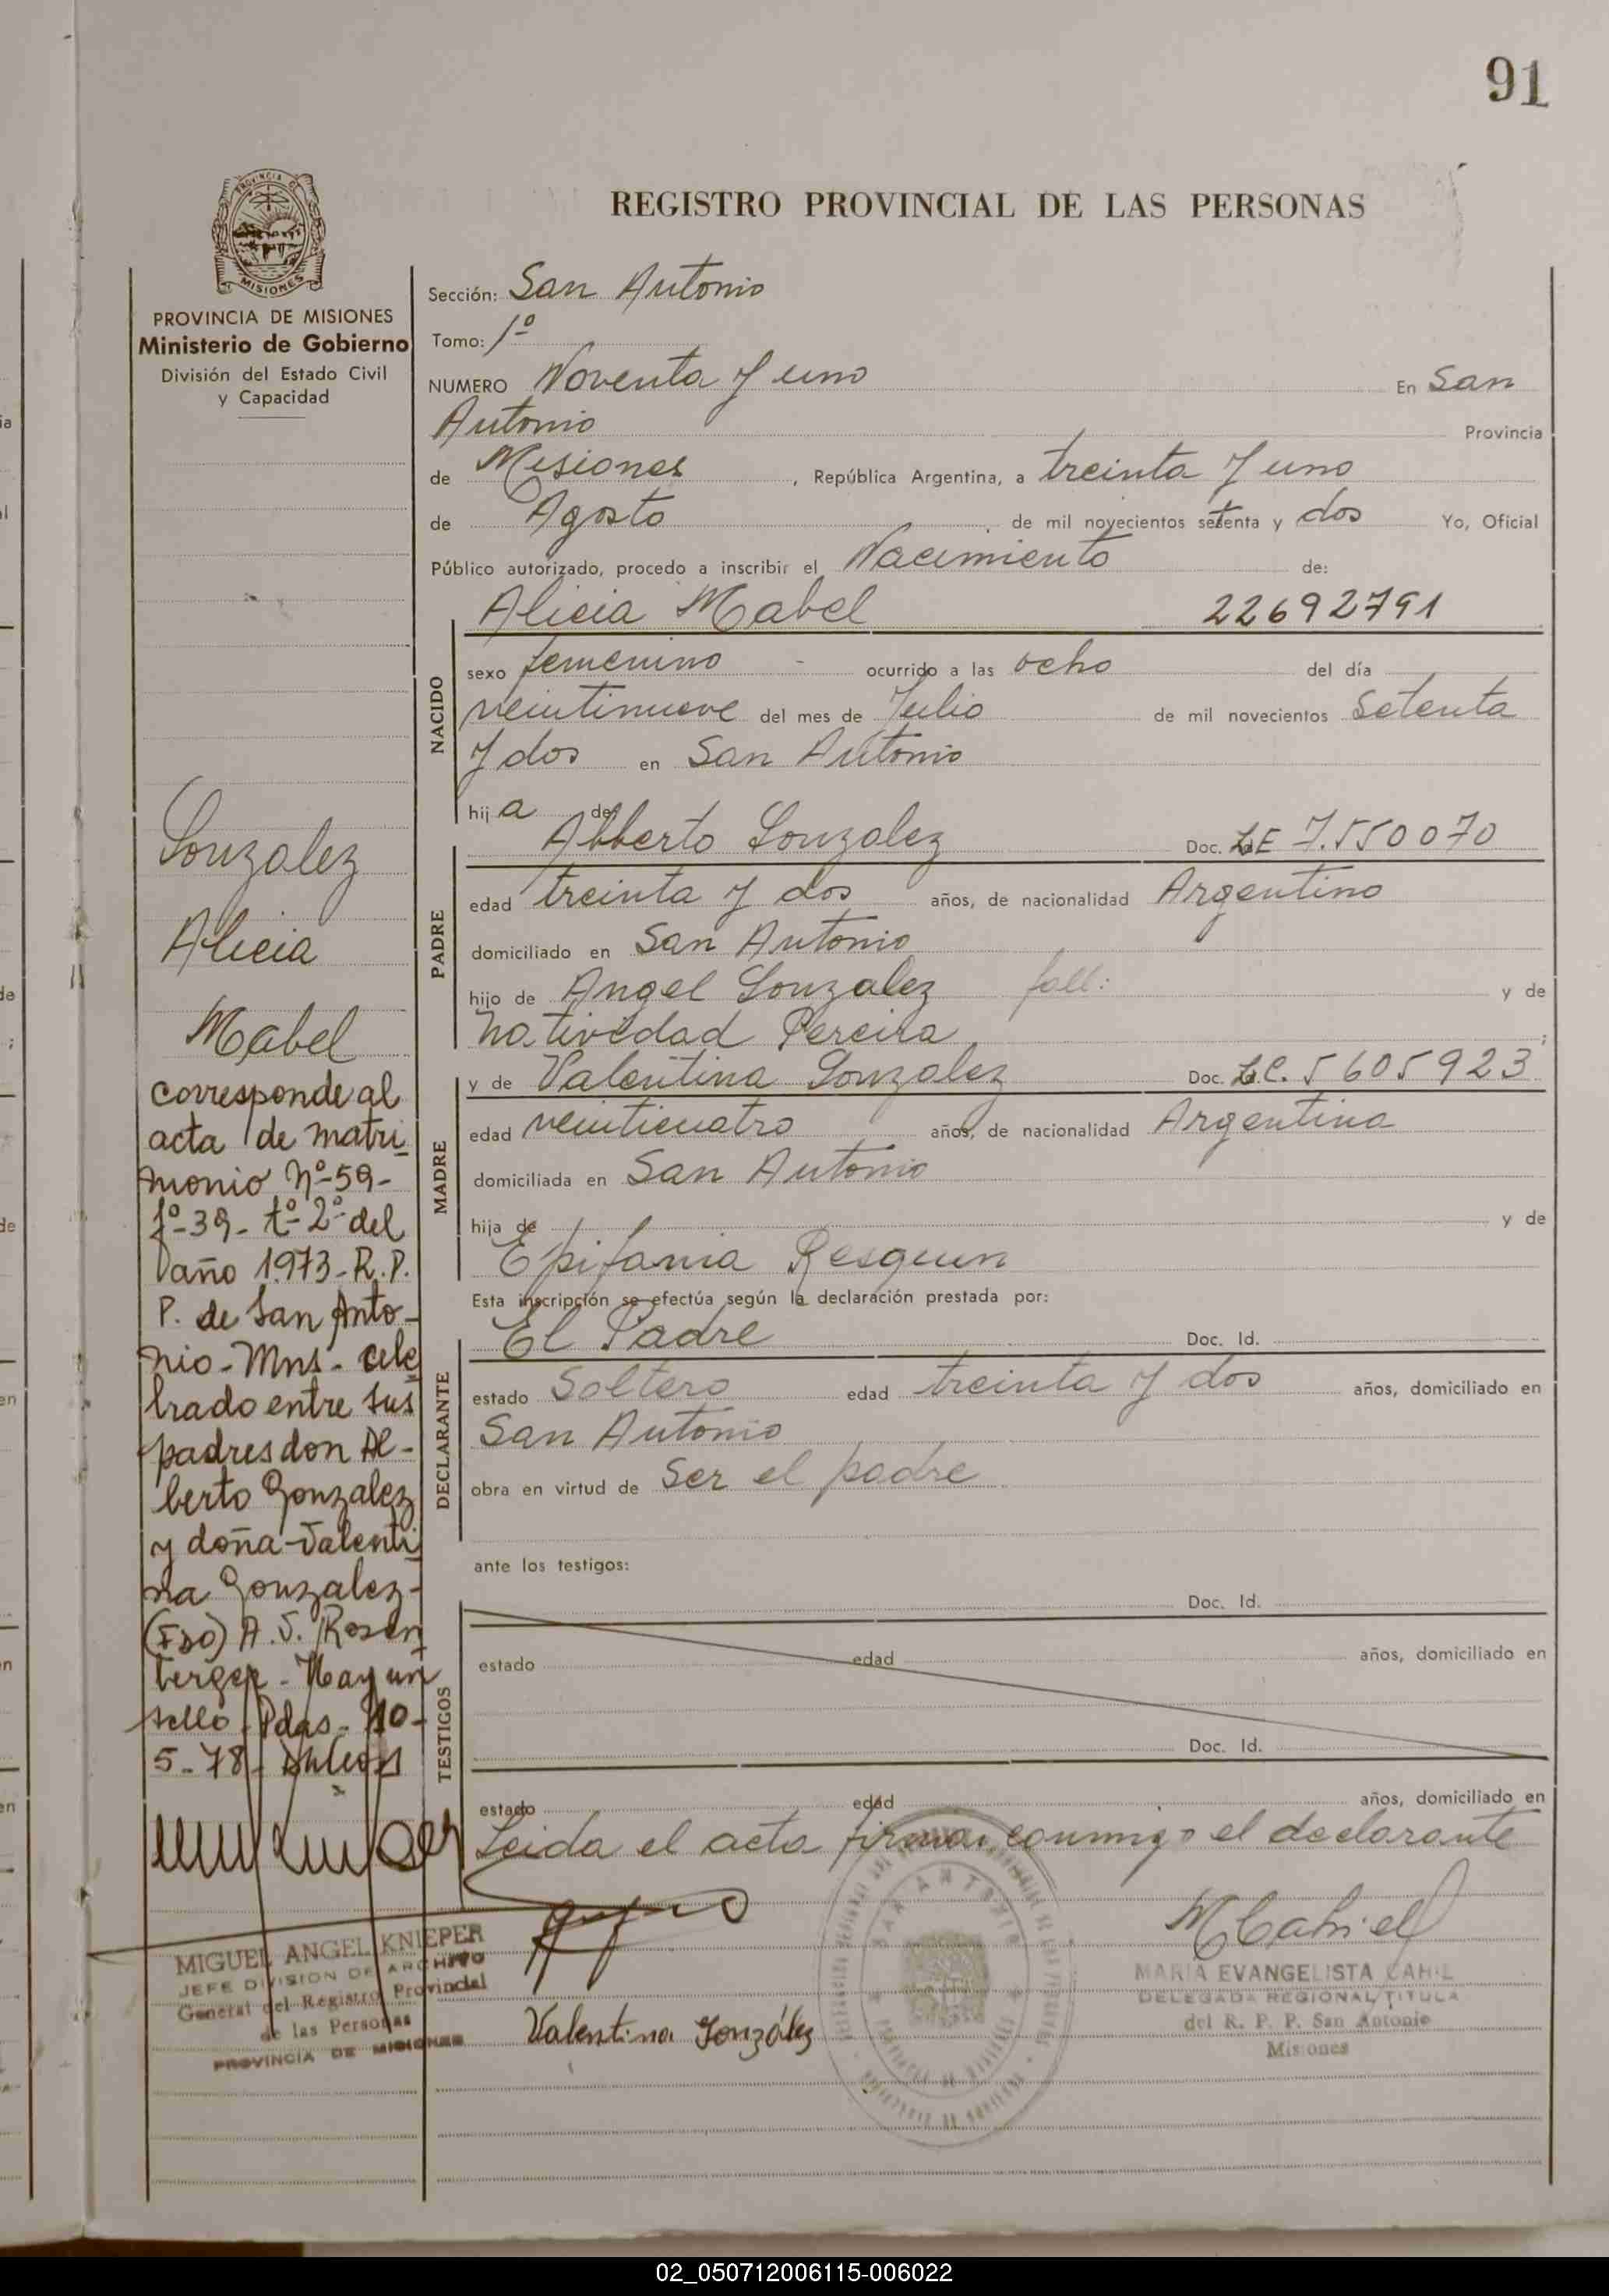 91
REGISTRO PROVINCIAL DE LAS PERSONAS
MISIONES
PROVINCIA DE MISIONES
Ministerio de Gobierno
División del Estado Civil
y Capacidad
Sección: San Antonio
Tomo: 1º
NUMERO Noventa y uno En San
Antonio Provincia
de Misiones, República Argentina, a treinta y uno
de Agosto de mil novecientos setenta y dos Yo, Oficial
Público autorizado, procedo a inscribir el Nacimiento de:
Alicia Mabel 22692791
NACIDO
sexo femenino - ocurrido a las ocho del día
veintinueve del mes de Julio de mil novecientos Setenta
y dos en San Antonio
hija de
PADRE
Alberto Gonzalez Doc. LE 7.550070
edad treinta y dos años, de nacionalidad Argentino
domiciliado en San Antonio
hijo de Angel Gonzalez fall: y de
Natividad Pereira ;
MADRE
y de Valentina Gonzalez Doc. L.C. 5605923
edad veinticuatro años, de nacionalidad Argentina
domiciliada en San Antonio
hija de y de
Epifania Resquin
Esta inscripción se efectúa según la declaración prestada por:
DECLARANTE
El Padre Doc. Id.
estado Soltero edad treinta y dos años, domiciliado en
San Antonio
obra en virtud de Ser el padre
ante los testigos:
TESTIGOS
Doc. Id.
estado edad años, domiciliado en
Doc. Id.
estado edad años, domiciliado en
Leida el acta firman conmigo el declarante
Valentina González
MARIA EVANGELISTA CAHIL
DELEGADA REGIONAL TITULA
del R. P. P. San Antonio
Misiones
Gonzalez
Alicia
Mabel
corresponde al
acta de matri
monio Nº-59-
fº-39- tº-2º del
año 1973-R.P.
P. de San Anto-
nio-Mns- cele
brado entre sus
padres don Al-
berto Gonzalez
y doña Valenti
na Gonzalez-
(FDO) A.S. Rosen
berger - Hay un
sello - Pdas- 10-
5-78-
MIGUEL ANGEL KNIEPER
JEFE DIVISION DE ARCHIVO
General del Registro Provincial
de las Personas
PROVINCIA DE MISIONES
02_050712006115-006022